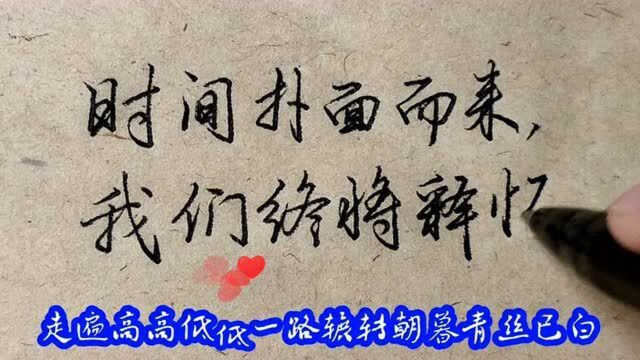 时间扑面而来,
我们终将释
走遍高高低低一路辗转朝暮青丝已白